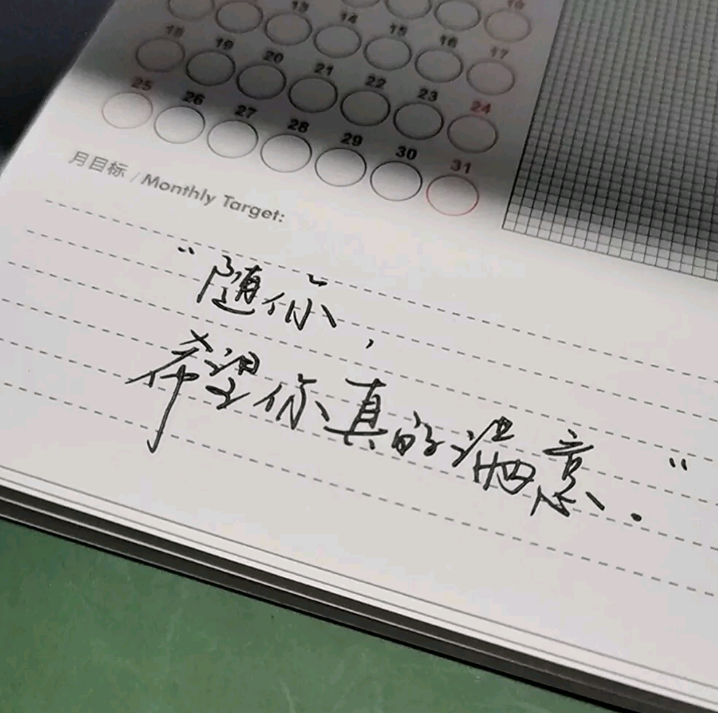 16
13 14 15 16 17
18 19 20 21 22 23 24
25 26 27 28 29 30 31
月目标 / Monthly Target:
“随你，
希望你真的满意.”